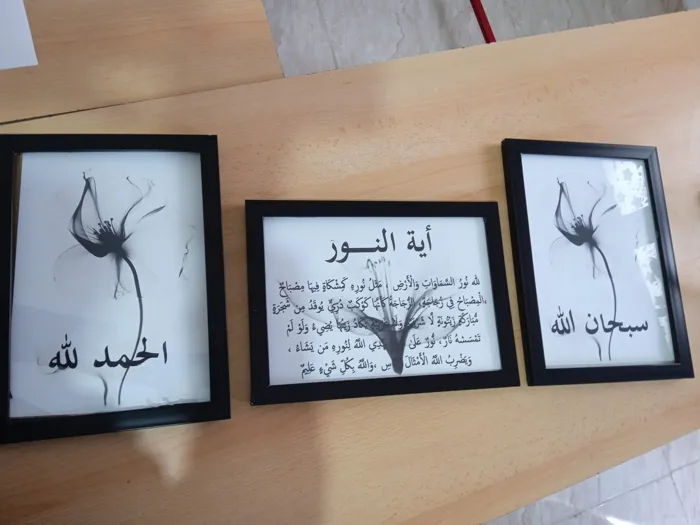 الحمد لله
أية النور
لله نُورُ السَّمَاوَاتِ وَالْأَرْضِ ، مَثَلُ نُورِهِ كَمِشْكَاةٍ فِيهَا مِصْبَاحٌ
الْمِصْبَاحُ فِي زُجَاجَةٍ الزُّجَاجَةُ كَأَنَّهَا كَوْكَبٌ دُرِّيٌّ يُوقَدُ مِن شَجَرَةٍ
مُّبَارَكَةٍ زَيْتُونَةٍ لَّا يَكَادُ زَيْتُهَا يُضِيءُ وَلَوْ لَمْ
تَمْسَسْهُ نَارٌ، نُّورٌ عَلَىٰ اللَّهُ لِنُورِهِ مَن يَشَاءُ ،
وَيَضْرِبُ اللَّهُ الْأَمْثَالَ ،وَاللَّهُ بِكُلِّ شَيْءٍ عَلِيمٌ
سبحان الله